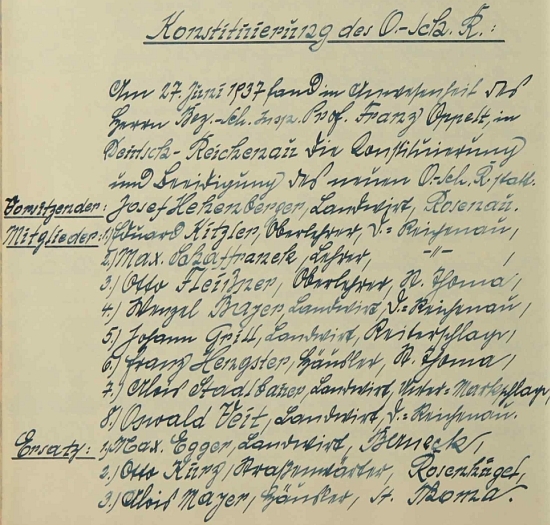 Konstituierung des O.-Sch. R.:
Am 27. Juni 1937 fand in Anwesenheit des
Herrn Bez.-Sch. Insp. Prof. Franz Oppelt, in
Deutsch-Reichenau die Konstituierung
und Beeidigung des neuen O.-Sch. R. statt.
Vorsitzender: Josef Hehenberger, Landwirt, Rosenau.
Mitglieder: 1.) Eduard Kitzler, Oberlehrer, D.=Reichenau,
2.) Max. Schaffranek, Lehrer, -"- ,
3.) Otto Fleißner, Oberlehrer, St. Thoma,
4.) Wenzel Mayer, Landwirt, D.=Reichenau,
5.) Johann Grill, Landwirt, Reiterschlag,
6.) Franz Hengster, Häusler, St. Thoma,
7.) Alois Stadlbauer, Landwirt, Unter=Markschlag,
8.) Oswald Veit, Landwirt, D.=Reichenau.
Ersatz: 1.) Max. Egger, Landwirt,
2.) Otto Kurz, Straßenwärter, Rosenhügel,
3.) Alois Mayer, Häusler, St. Thoma.